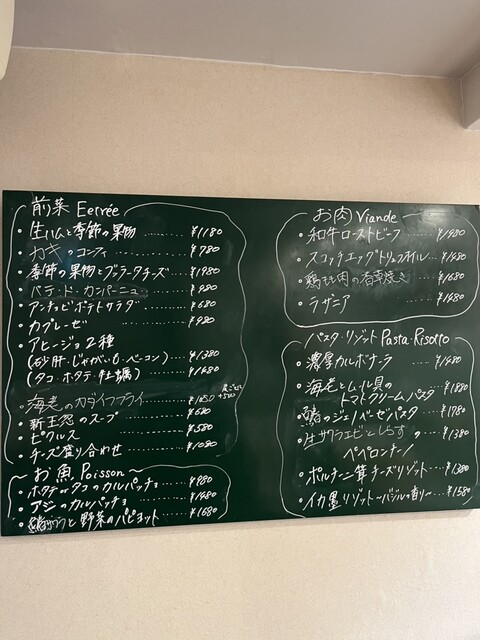 前菜 Eetrée
・生ハムと季節の果物 ……… ¥1180
・カキのコンフィ ……… ¥780
・季節の果物とブラータチーズ …… ¥1980
・パテ・ド・カンパーニュ …… ¥980
・アンチョビポテトサラダ …… ¥680
・カプレーゼ …… ¥980
・アヒージョ2種
(砂肝・じゃがいも・ベーコン) …… ¥1380
(タコ・ホタテ・牡蠣) …… ¥1480
・海老のカダイフフライ …… +500
・新玉葱のスープ …… ¥680
・ピクルス …… ¥580
・チーズ盛り合わせ …… ¥1080
お魚 Poisson
・ホタテorタコのカルパッチョ …… ¥980
・アジのカルパッチョ …… ¥1480
・と野菜のパピヨット …… ¥1680
お肉 Viande
・和牛ローストビーフ …… ¥1980
・スコッチエッグトリュフオイル …… ¥1480
・鶏もも肉の香草焼き …… ¥1680
・ラザニア …… ¥1680
パスタ・リゾット Pasta・Risotto
・濃厚カルボナーラ …… ¥1480
・海老とムール貝の
トマトクリームパスタ …… ¥1880
・のジェノベーゼパスタ …… ¥1780
・生サクラエビとしらすの …… ¥1380
ペペロンチーノ
・ポルチーニ茸チーズリゾット …… ¥1380
・イカ墨リゾット〜バジルの香り〜 … ¥1580